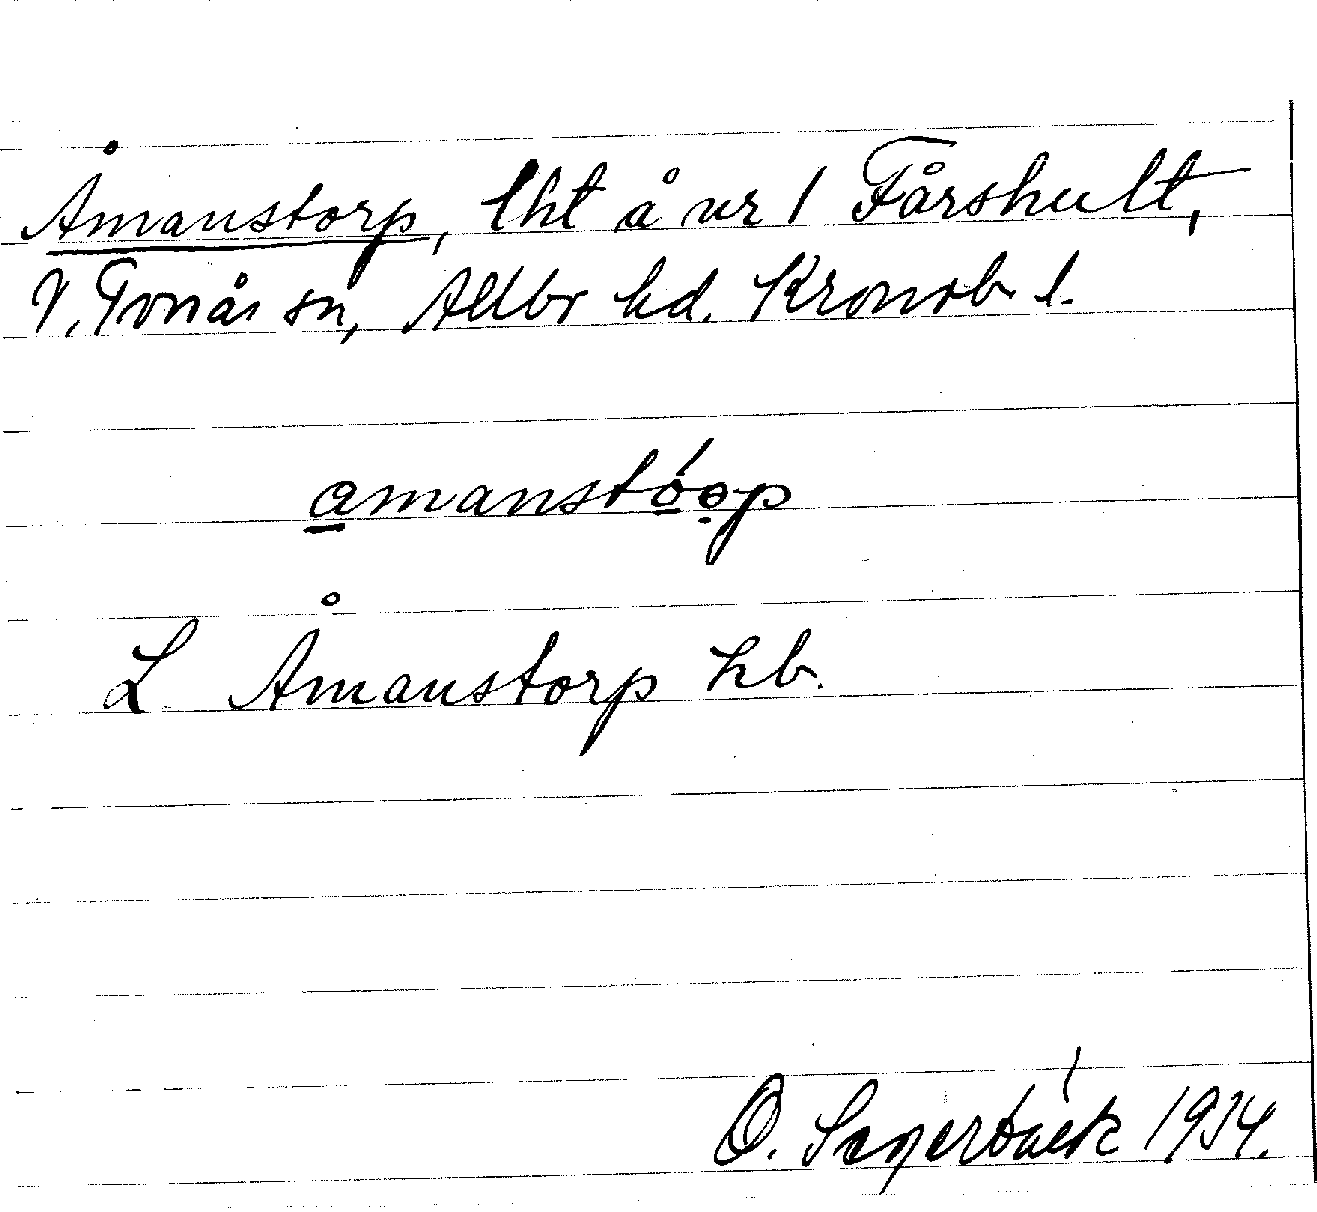 Åmanstorp, lht å nr 1 Fårshult,
V. Torsås sn, Allbo hd. Kronob l.
amanstóop
L Åmanstorp hb.
O. 1934.